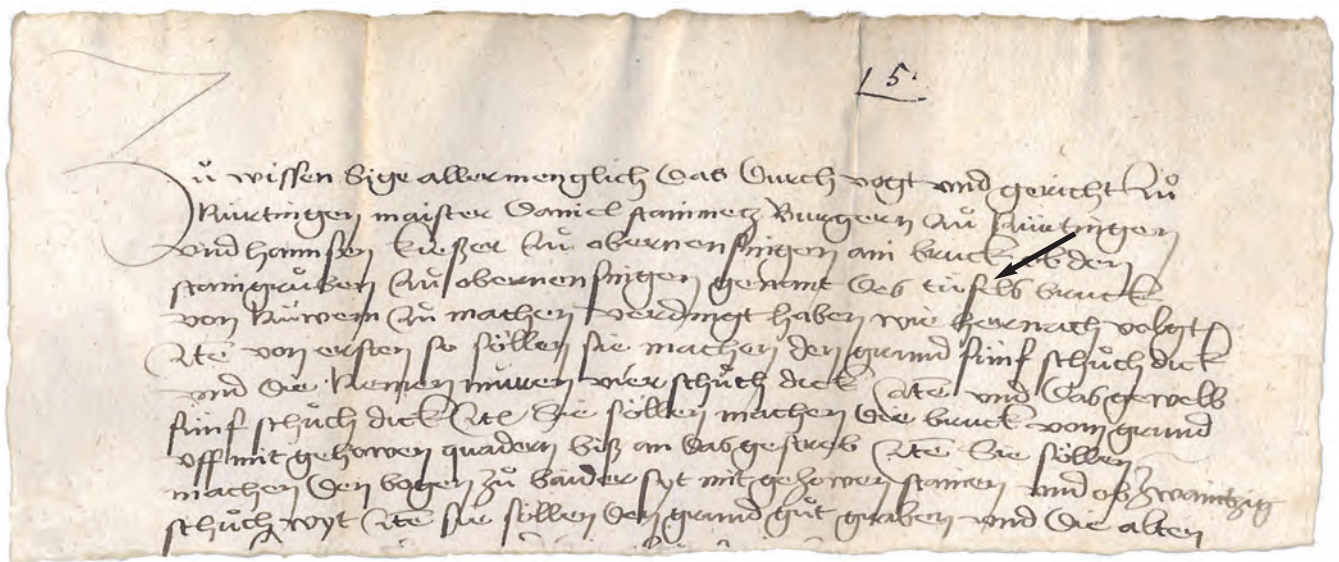 15.
Zů wissen sige allermenglich das durch vogt und gericht zů
Nürtingen maister Daniel stainmetz Burgern zů Nürtingen
und hannsen kießer zů obernensingen ain bruck ob den
staingrůben zů obernensingen genant des tüfels bruck
von nüwem zů machen verdingt haben wie hernach volgt
Ite von ersten so söllen sie machen den grund fünf schůch dick
und die muren vier schůch dick Ite und das gewelb
fünf schůch dick Ite Sie söllen machen die bruck vom grund
uff mit gehowen quadern biß an das gesreb Ite Sie söllen
machen den bogen zů baider syt mit gehowen stainen und ob zwaintzig
schůch wyt Ite sie söllen den grund gůt graben und die alten